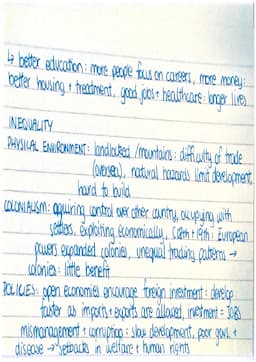 ↳ better education: more people focus on careers, more money:
better housing + treatment, good jobs + healthcare: longer lives
INEQUALITY
PHYSICAL ENVIRONMENT: landlocked/mountains: difficulty of trade
(oversea), natural hazards limit development,
hard to build
COLONIALISM: aquiring control over other country, occupying with
settlers, exploiting economically, (18th + 19th: European
powers expanded colonies, unequal trading patterns →
colonies: little benefit
POLICIES: open economies encourage foreign investment: develop
faster as imports + exports are allowed, investment = JOBS
mismanagement + corruption: slow development, poor govt. +
disease → setbacks in welfare + human rights